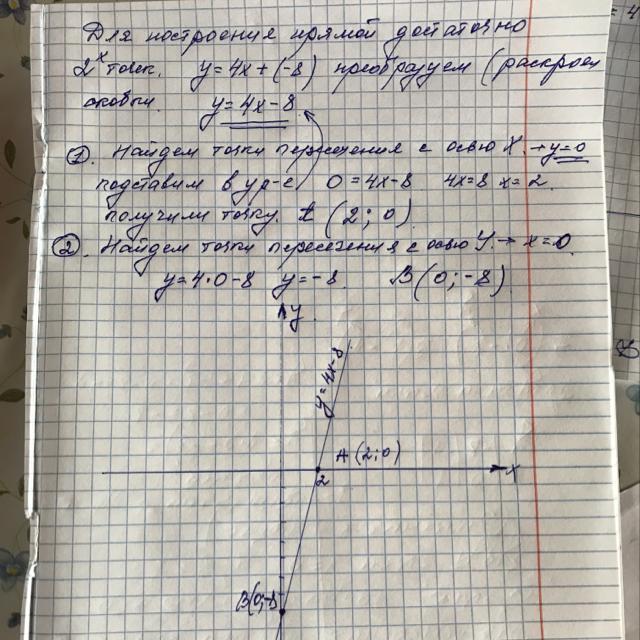 Для построения прямой достаточно
2х точек. y=4x+(-8) преобразуем (раскроем
скобки. y=4x-8
1. Найдем точки пересечения с осью X. → y=0
подставим в ур-е 0=4x-8 4x=8 x=2.
получили точку A (2; 0).
2. Найдем точки пересечения с осью Y → x=0.
y=4·0-8 y=-8. B(0; -8)
y
y=4x-8
A (2; 0)
2
x
B(0;-8